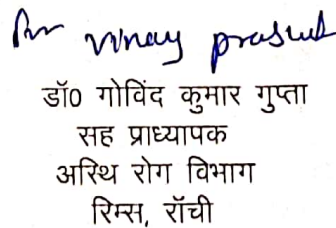 Dr vinay prasad
डॉ0 गोविंद कुमार गुप्ता
सह प्राध्यापक
अस्थि रोग विभाग
रिम्स, राँची